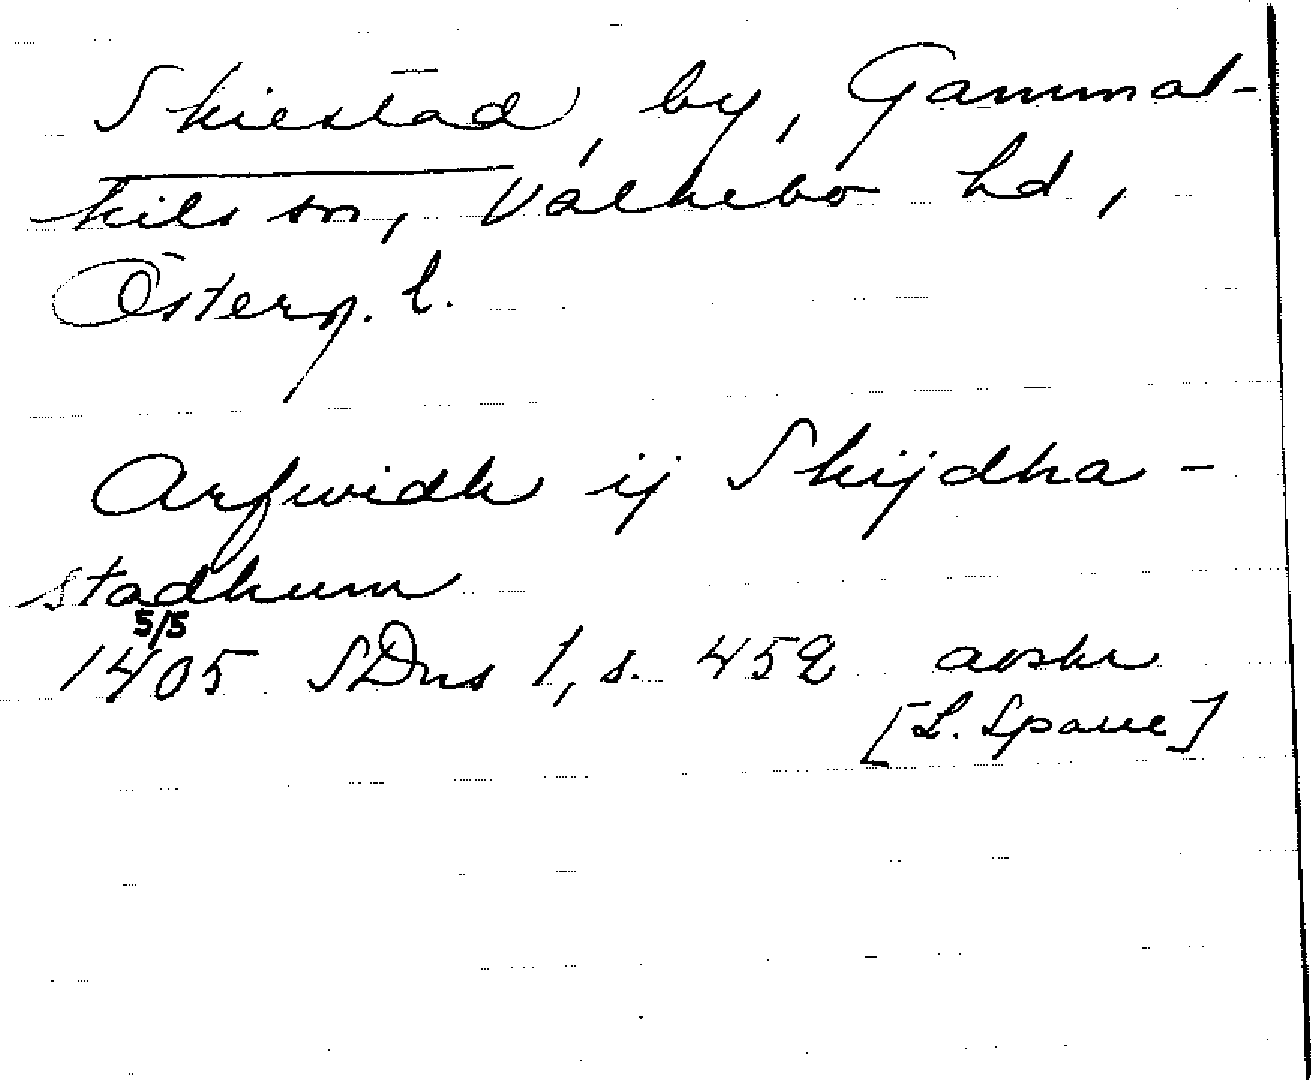 Skiestad, by, Gammal-
kils sn, Valkebo hd,
Österg. l.
Arfwidh ij Skijdha-
stadhum
5/5
1405 SDns 1, s. 452 avskr
[L. Spaue]